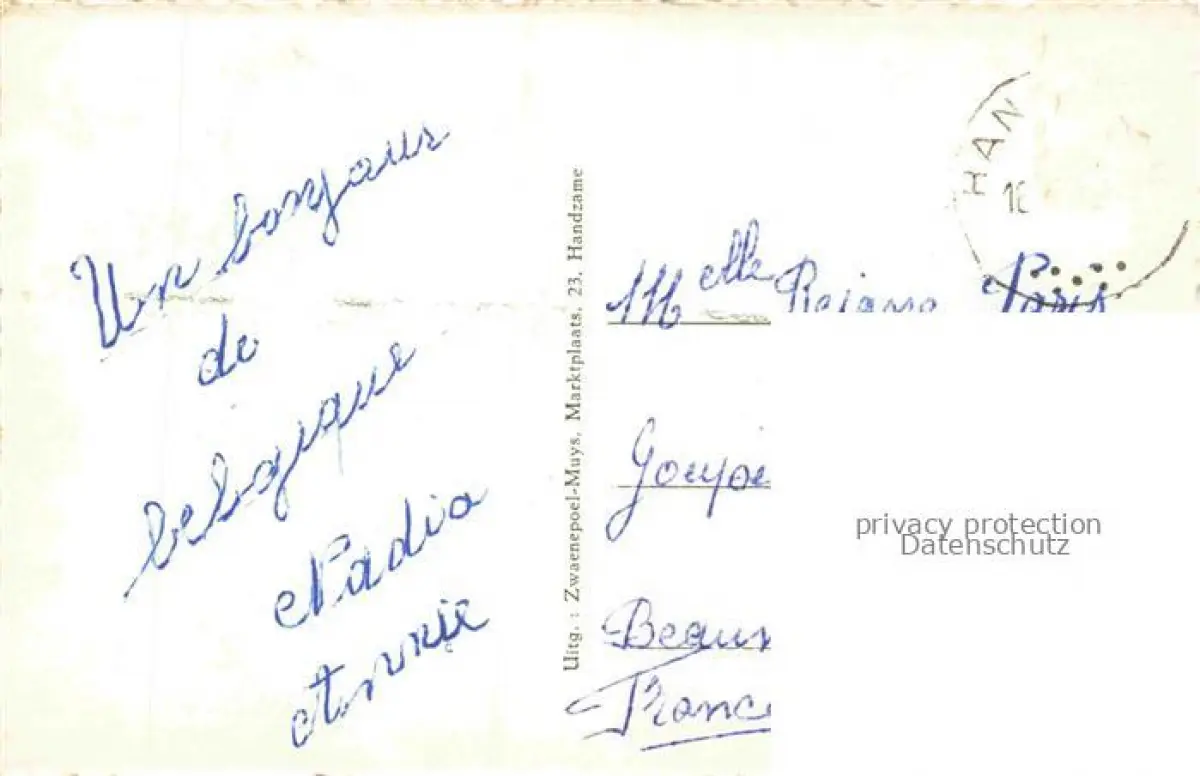 Un bonjour
de
belgique
Nadia
Annie
Uitg. : Zwaenepoel-Muys, Marktplaats, 23, Handzame
HAN
Melle Paris
Beau
France
privacy protection
Datenschutz